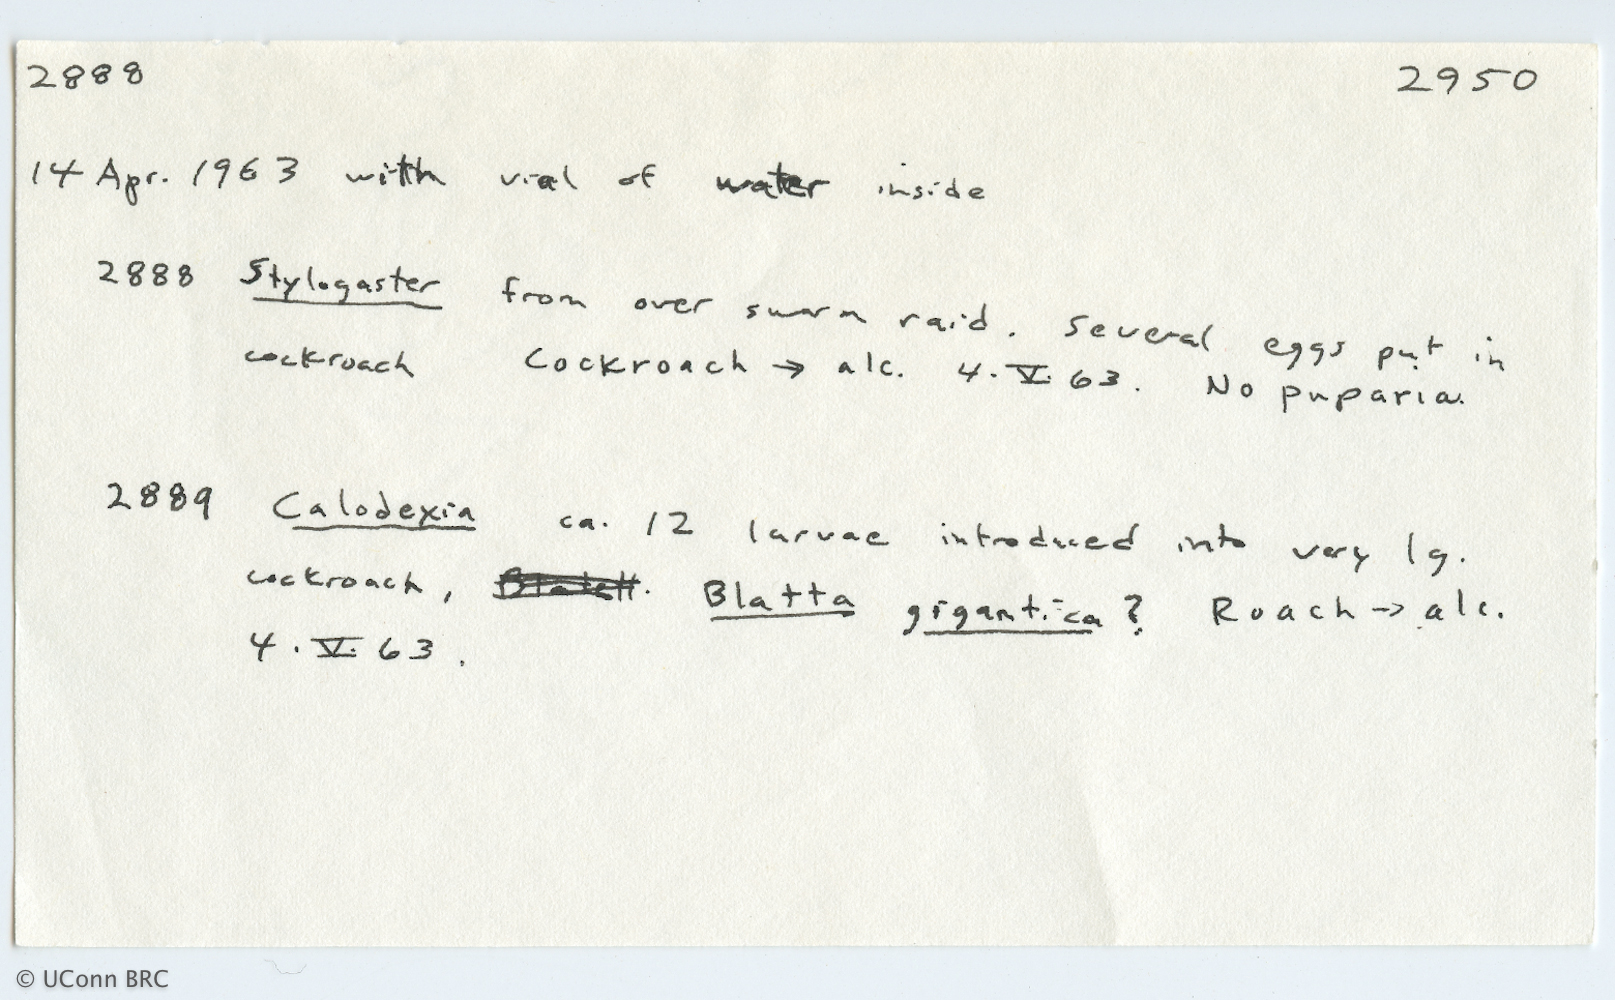 2888 2950
14 Apr. 1963 with vial of water inside
2888 Stylogaster from over swarm raid. Several eggs put in
cockroach Cockroach → alc. 4.V.63. No puparia.
2889 Calodexia ca. 12 larvae introduced into very lg.
cockroach, Blatta gigantica? Roach → alc.
4.V.63.
© UConn BRC